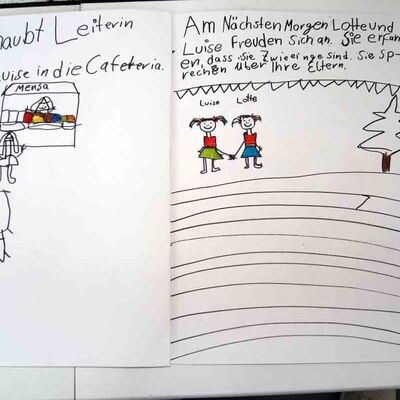 haubt Leiterin
uise in die Cafeteria.
Mensa
Am Nächsten Morgen Lotte und
Luise Freuden sich an. Sie erfan
en, dass sie Zwieeinge sind. Sie sp-
rechen über Ihre Eltern.
Luise Lotte